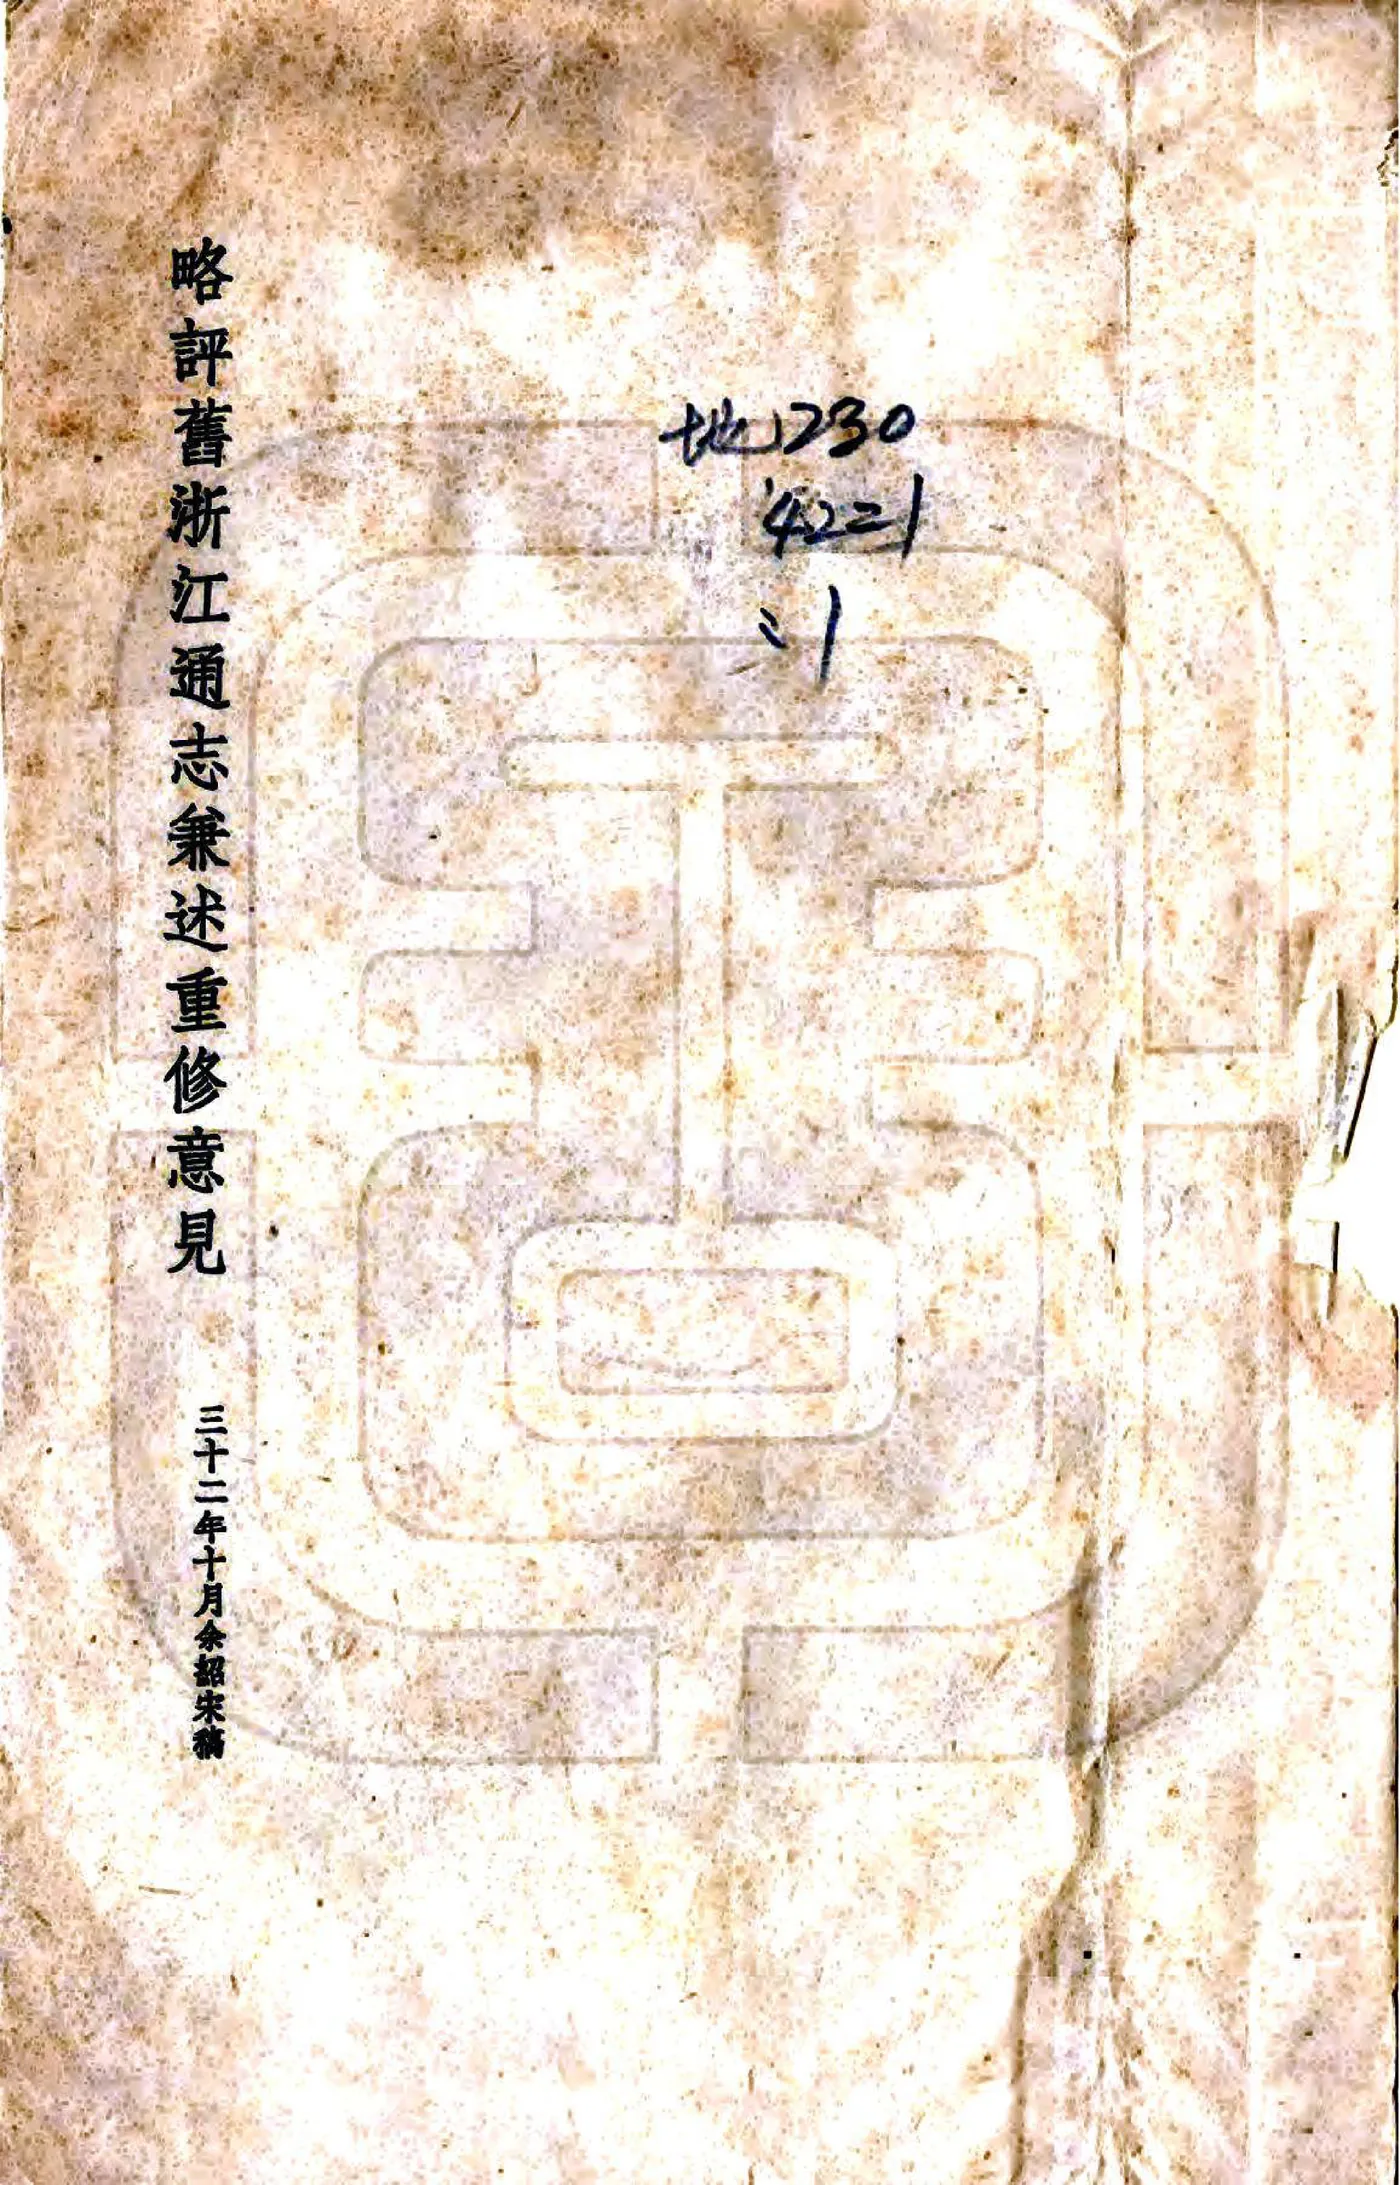 略評舊浙江通志兼述重修意見
三十二年十月余紹宋稿
地230
422=1
:1